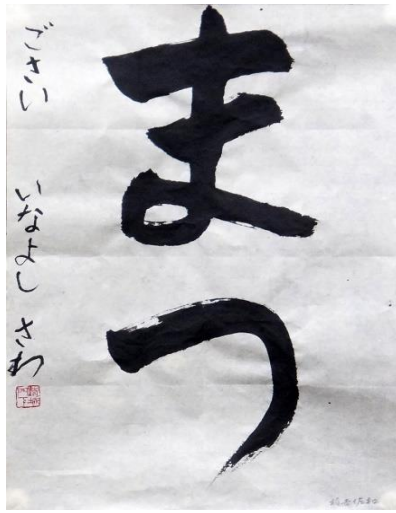 まつ
ごさい
いなよし さわ